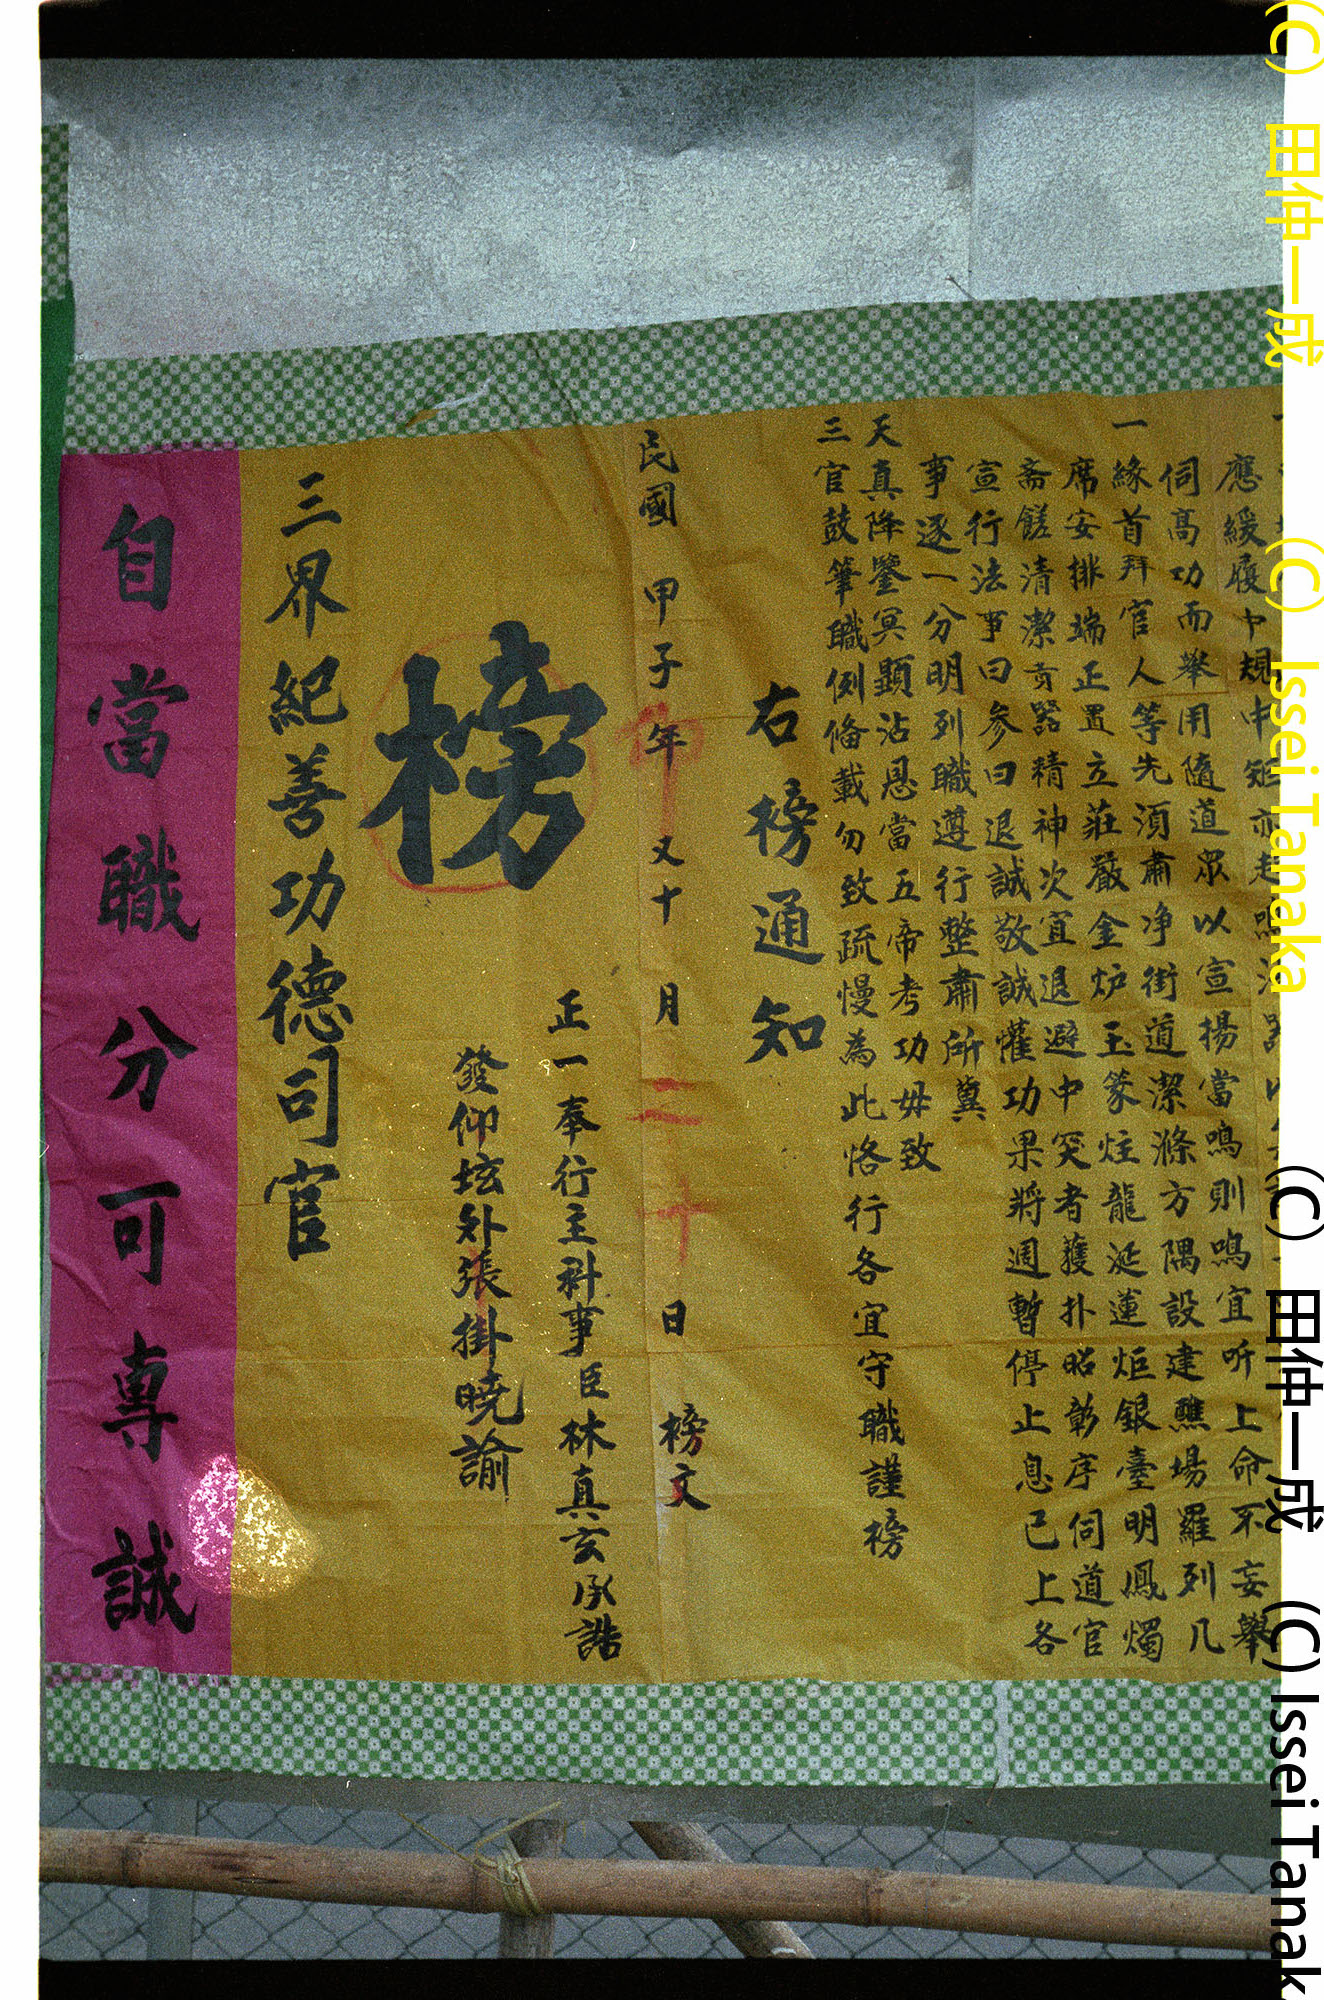 應緩履中規中矩亦赴
伺高功而舉用隨道眾以宣揚當鳴則鳴宜听上命不妄舉
一緣首拜官人等先須肅净街道潔滌方隅設建醮場羅列几
席安排端正置立莊嚴金炉玉篆炷龍涎蓮炬銀臺明鳳燭
斋饈清潔貢器精神次宜退避中突者護扑昭彰序伺道官
宣行法事曰參曰退誠敬誠懽功果將週暫停止息已上各
事逐一分明列職遵行整肅所冀
天真降鑒冥顯沾恩當五帝考功毋致
三官鼓筆職例俻載勿致疏慢為此恪行各宜守職謹榜
右榜通知
民國甲子年又十月二十日榜文
正一奉行主科事臣林真玄承誥
榜
發仰坛外張掛曉諭
三界紀善功德司官
自當職分可專誠
(C) 田仲一成 (C) Issei Tanaka (C) 田仲一成 (C) Issei Tanak